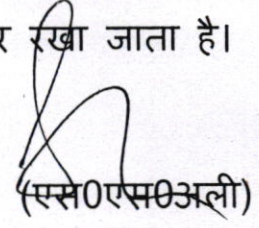 र रखा जाता है।
(एस0एस0अली)